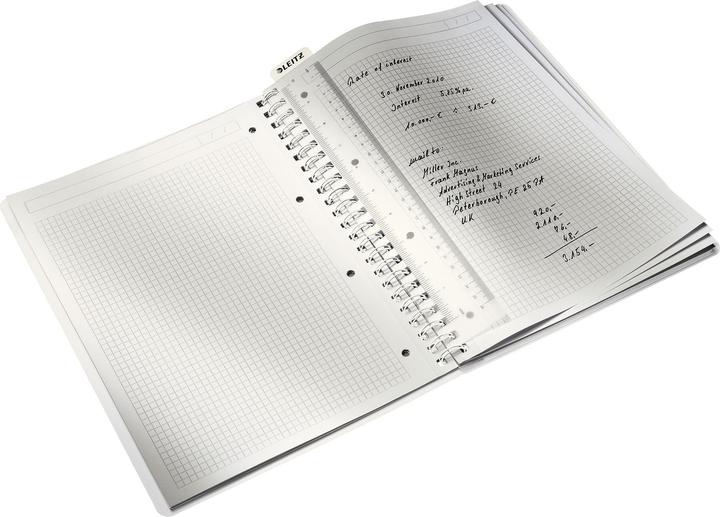 LEITZ
Rate of interest
30. November 2010
Interest 3,15% pa.
10.000,- € ÷ 315,- €
mail to:
Miller Inc.
Frank Magnus
Advertising & Marketing Services
High Street 24
Peterborough, PE 25 7A
UK
920,-
2.110,-
76,-
48,-
3.154,-